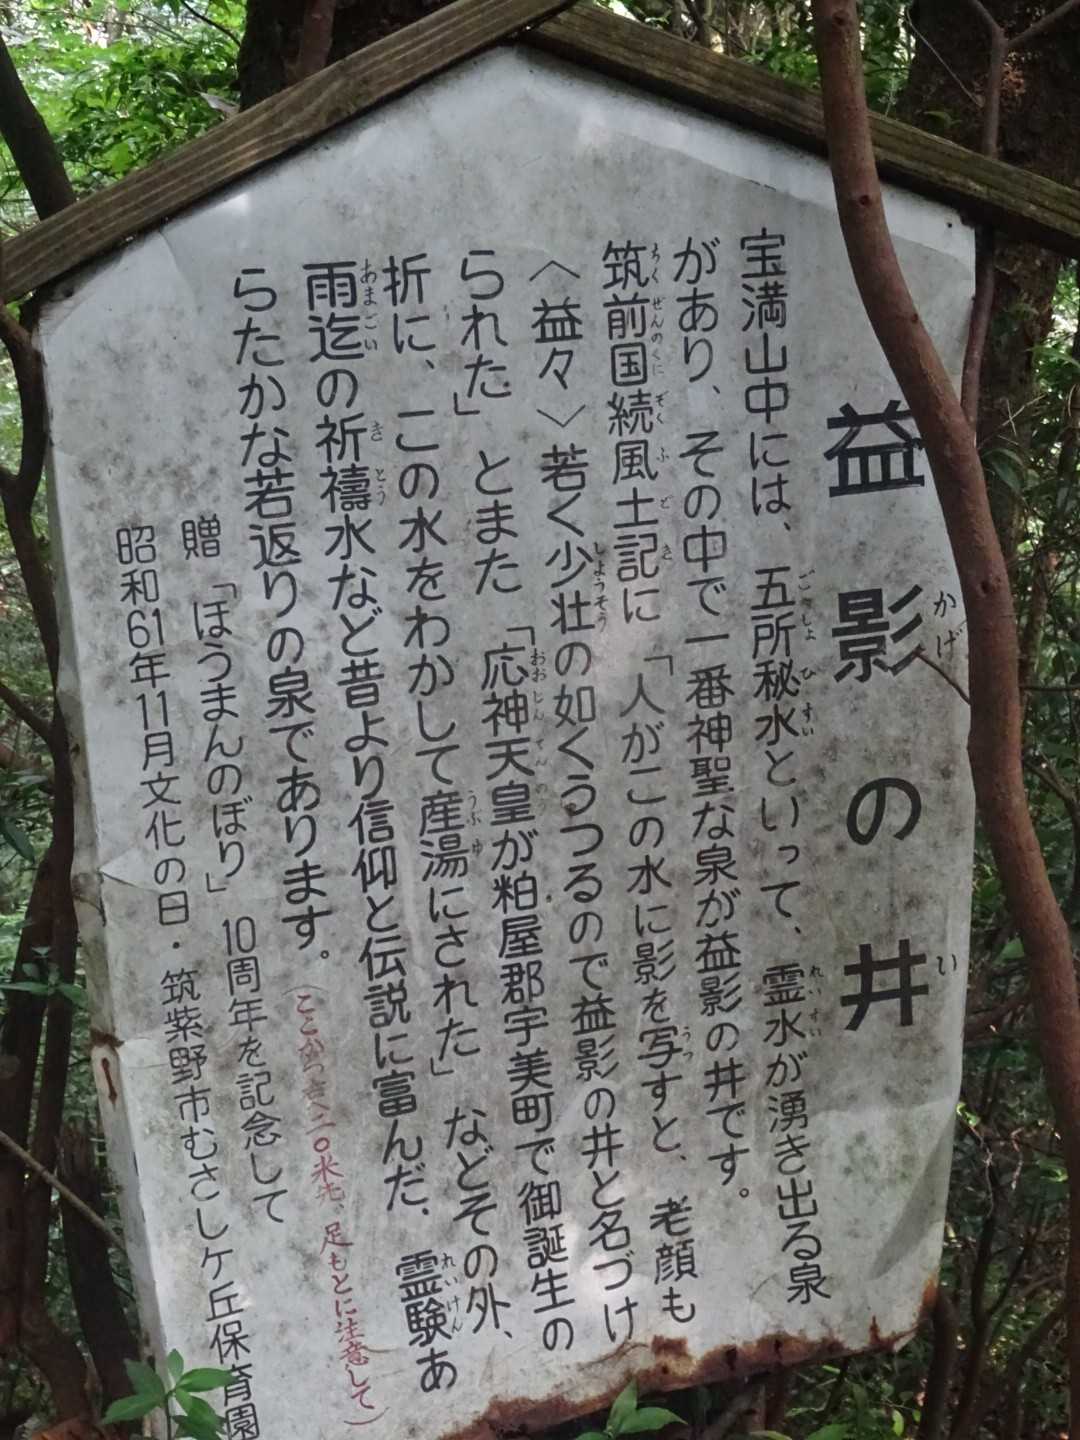 益影の井
宝満山中には、五所秘水といって、霊水が湧き出る泉
があり、その中で一番神聖な泉が益影の井です。
筑前国続風土記に「人がこの水に影を写すと、老顔も
〈益々〉若く少壮の如くうつるので益影の井と名づけ
られた」とまた「応神天皇が粕屋郡宇美町で御誕生の
折に、この水をわかして産湯にされた」などその外、
雨迄の祈禱水など昔より信仰と伝説に富んだ、霊験あ
らたかな若返りの泉であります。
(ここから 二〇米先、足もとに注意して)
贈「ほうまんのぼり」10周年を記念して
昭和61年11月文化の日・筑紫野市むさしケ丘保育園